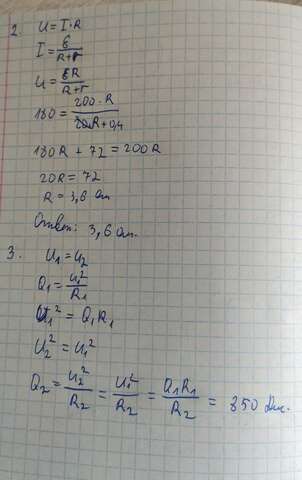 2. U = I·R
I = ε/(R+r)
U = εR/(R+r)
180 = 200·R/(R+0,4)
180R + 72 = 200R
20R = 72
R = 3,6 Ом
Ответ: 3,6 Ом.
3. U₁ = U₂
Q₁ = U₁²/R₁
U₁² = Q₁R₁
U₂² = U₁²
Q₂ = U₂²/R₂ = U₁²/R₂ = Q₁R₁/R₂ = 350 Дж.